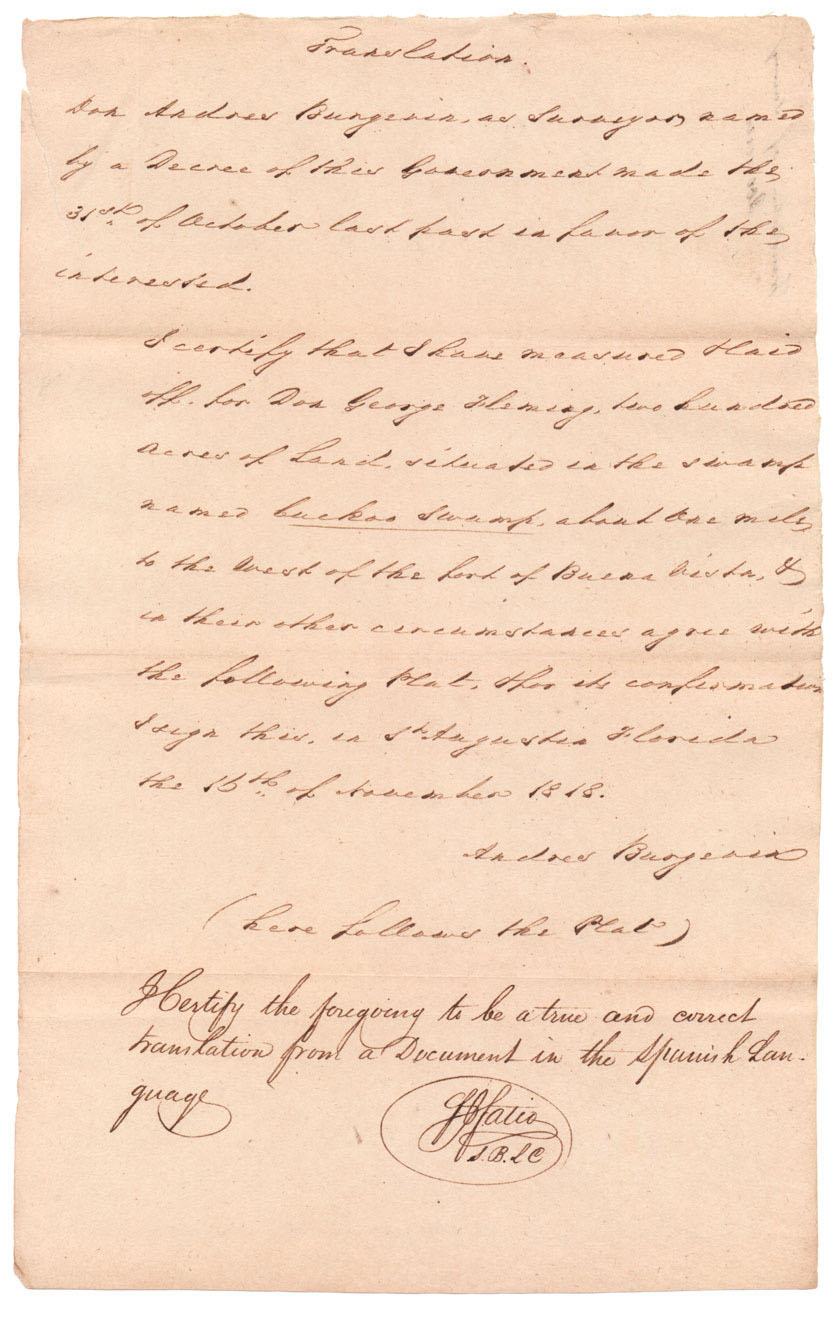 Translation.
Don Andres Burgevin, as Surveyor, named
by a Decree of this Government made the
31st. of October last past in favor of the
interested.
I certify that I have measured & laid
off. for Don George Fleming, two hundred
Acres of Land, situated in the swamp
named Cuckoo Swamp, about One mile
to the West of the fort of Buena Vista, &
in their other circumstances agree with
the following Plat, & for its confirmation
I sign this, in St. Augustin Florida
the 16th. of November 1818.
Andres Burgevin
(here follows the Plat)
I Certify the foregoing to be a true and correct
translation from a Document in the Spanish Lan-
guage
S.B.L.C